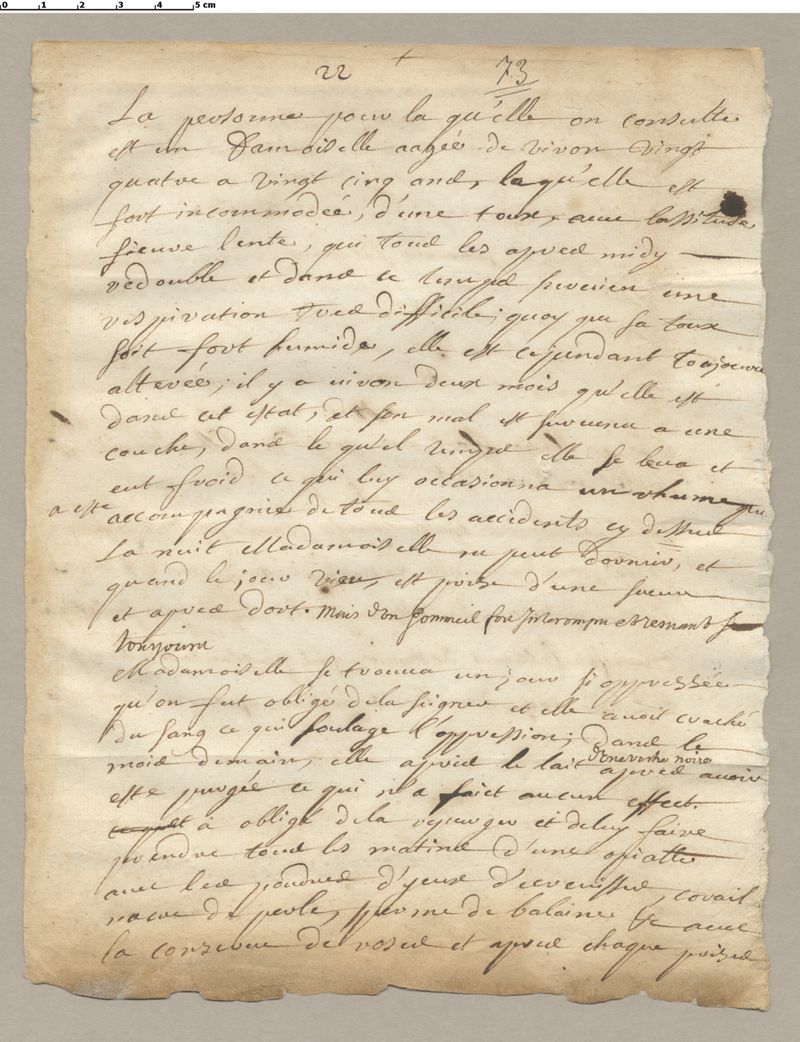 0 1 2 3 4 5 cm
22 + 73
La personne pour la qu'elle on consulte
est un Damoiselle aagée de viron vingt
quatre a vingt cinq ans, laqu'elle est
fort incommodeé, d'une toux, avec lassitude
fieuvre lente, qui tous les apres midy
redouble et dans ce temps survien une
respiration tres difficile; quoy que sa toux
soit fort humide, elle est cependant toujours
alterée; il y a viron deux mois qu'elle est
dans cet estat, et son mal est survenu a une
couche, dans le qu'el temps elle se leva et
eut froid ce qui luy occasionna un rhume qui
a este accompagnie de tous les accidents cy dessus
La nuit Madamoiselle ne peut dormir, et
quand le jour vien, est prise d'une sueur
et apres dort. Mais d'un sommeil fort Interrompu et resvant
tousjours
Madamoiselle se trouva un jour si oppressée
qu'on fut obligé de la seigner et elle avoit craché
du sang ce qui soulage l'oppression; dans le
mois de main, elle a pris le lait d'une vache noire apres avoir
esté purgée ce qui n'a faict aucun effect.
à obligé de la repurger et de luy faire
prendre tous les matins d'une opiatte
avec les poudres d'yeux d'ecrevisses, corail
nacre de perle, sperme de balaine &c avec
la conserve de roses et apres chaque prises